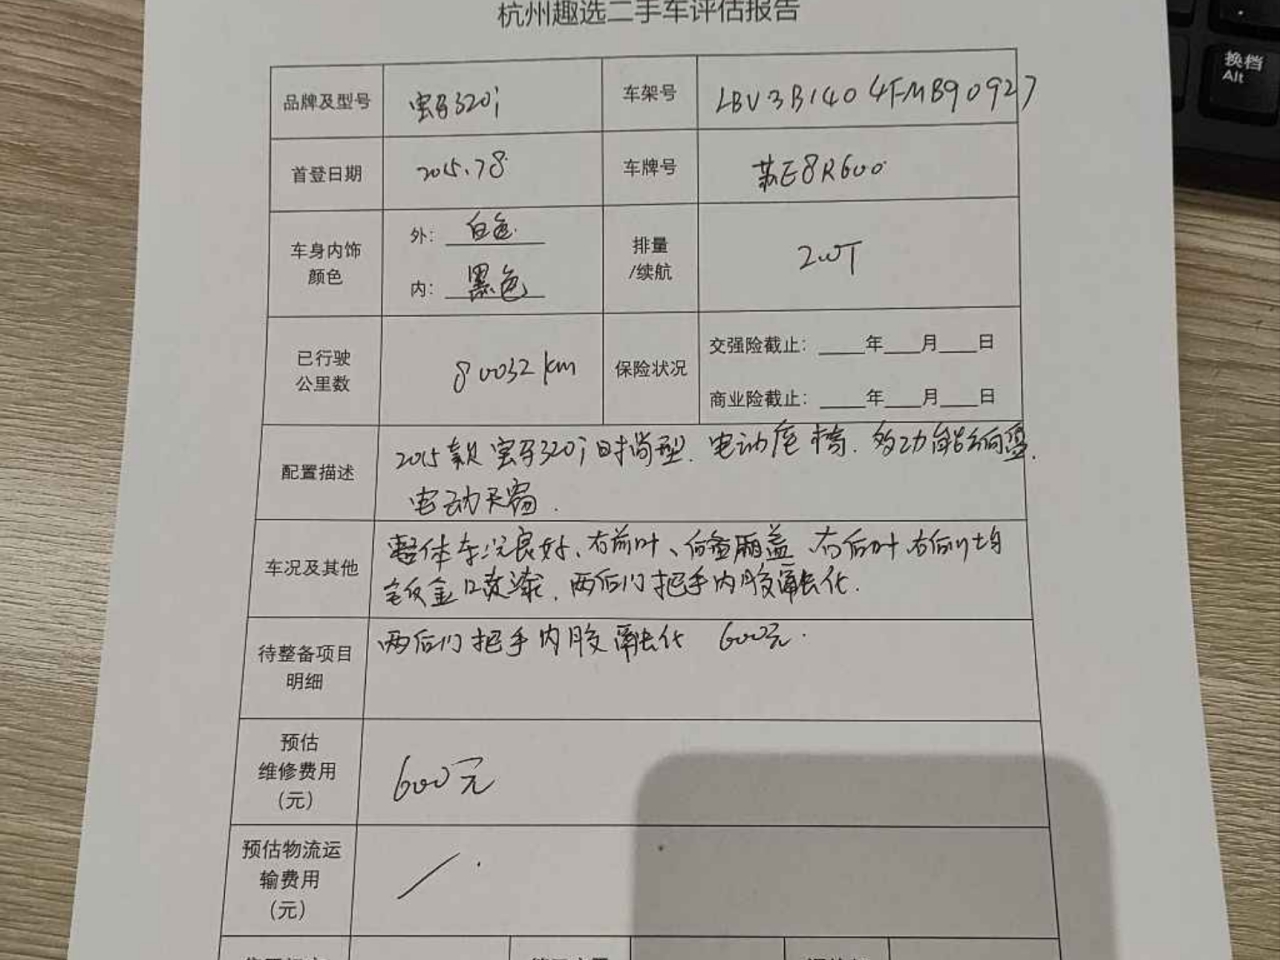 杭州趣选二手车评估报告
换档
Alt
品牌及型号 宝马320i 车架号 LBV3B1404FMB90927
首登日期 2015.78 车牌号 苏E8R600
车身内饰
颜色
外: 白色
内: 黑色
排量
/续航
2.0T
已行驶
公里数
80032km
保险状况
交强险截止: ____年___月___日
商业险截止: ____年___月___日
配置描述
2015款宝马320i时尚型. 电动座椅. 多功能方向盘.
电动天窗.
车况及其他
整体车况良好、右前叶、后备厢盖、右后叶右后门均
钣金喷漆. 两后门把手内胶融化.
待整备项目
明细
两后门把手内胶融化 600元.
预估
维修费用
(元)
600元
预估物流运
输费用
(元)
/.